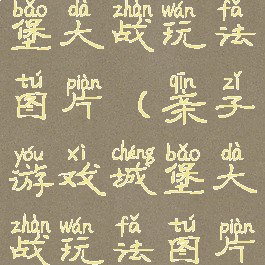 bǎo dà zhàn wán fǎ
堡大战玩法
tú piàn qīn zǐ
图片(亲子
yóu xì chéng bǎo dà
游戏城堡大
zhàn wán fǎ tú piàn
战玩法图片